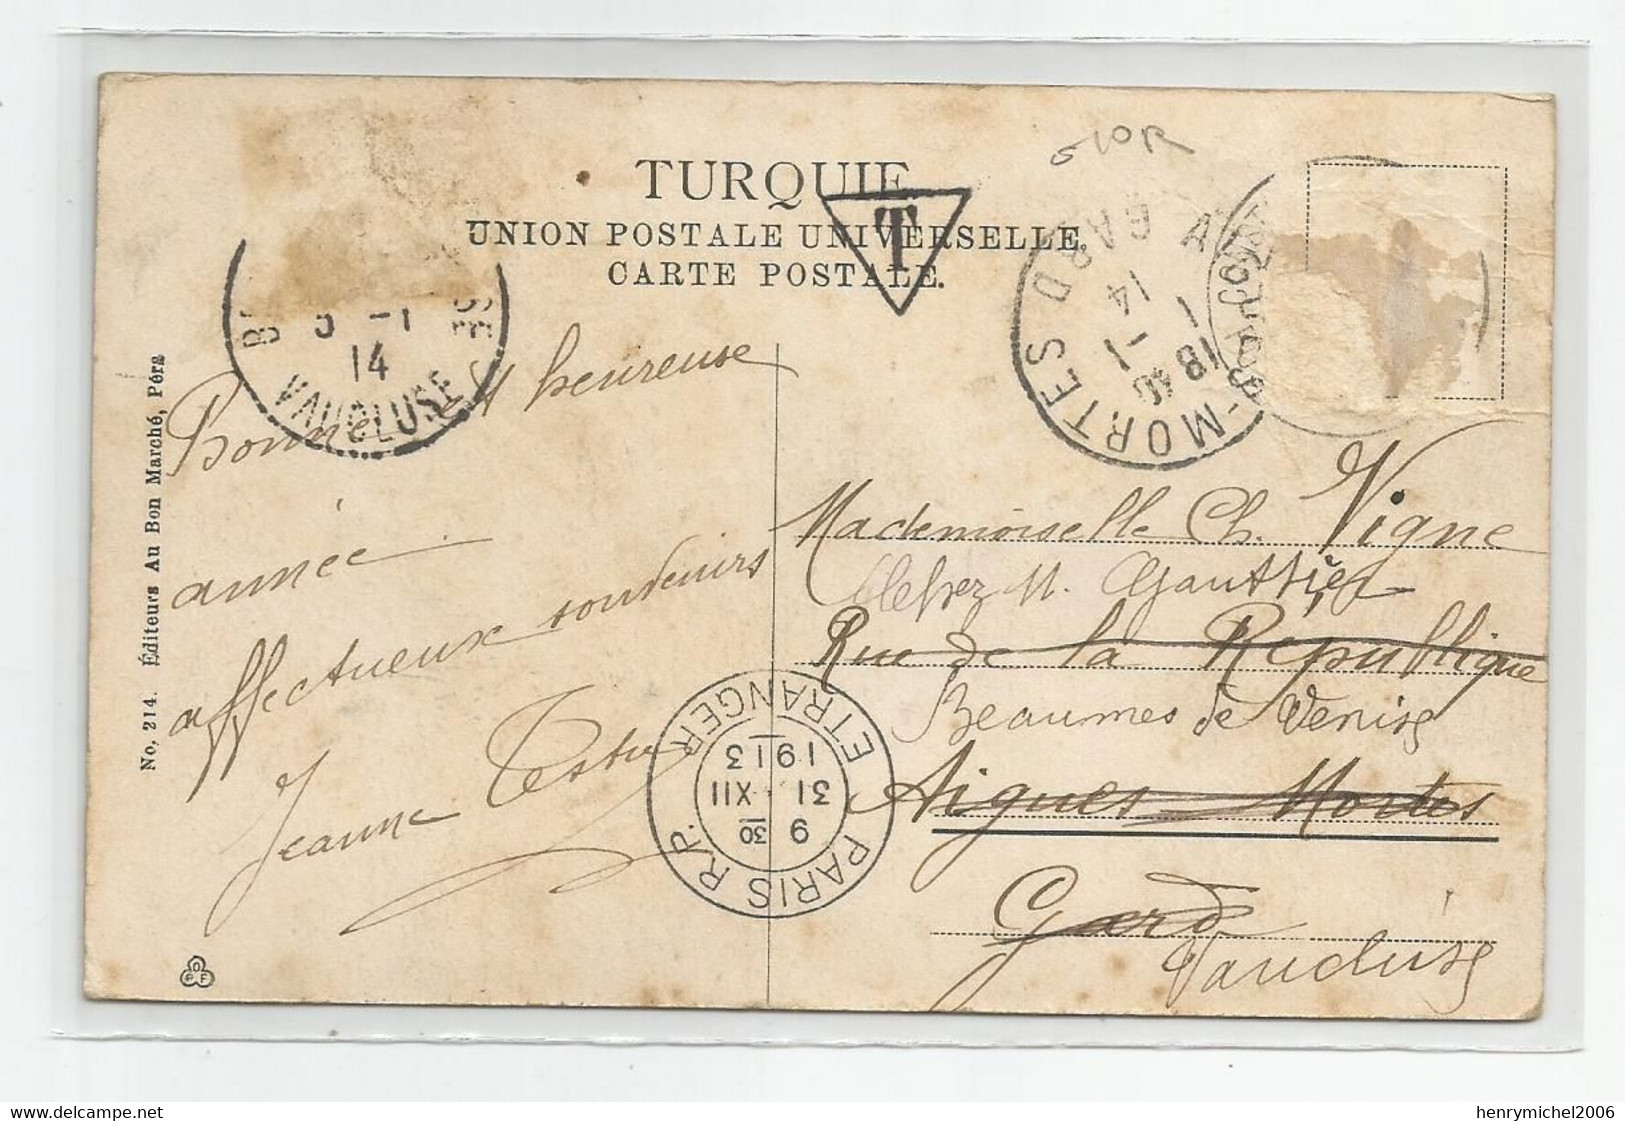 TURQUIE
UNION POSTALE UNIVERSELLE.
CARTE POSTALE.
T
GARD
14
1 -1
18 40
-MORTES
5 -1
14
VAUCLUSE
Bonne et heureuse
année
affectueux souvenirs
Jeanne Testu
Mademoiselle Ch. Vigne
chez M. Gauttier
Rue de la République
Beaumes de Venise
Aigues Mortes
Gard
Vaucluse
PARIS R.P.
ETRANGER
9 30
31 XII
1913
No, 214. Éditeurs Au Bon Marché, Péra
henrymichel2006